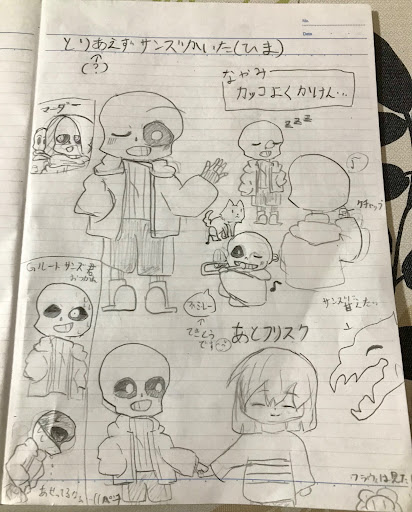 No.
Date
とりあえずサンズかいた(ひま)
↑
(?)
なかみ
カッコよくかけん…
マーダー
zzz
♪
ケチャップ
Gルートサンズ君
おつかれ
♪
↑
てきとう
です
あとフリスク
サンズに
甘えたい
あせってるなぁ
フラウィは見た